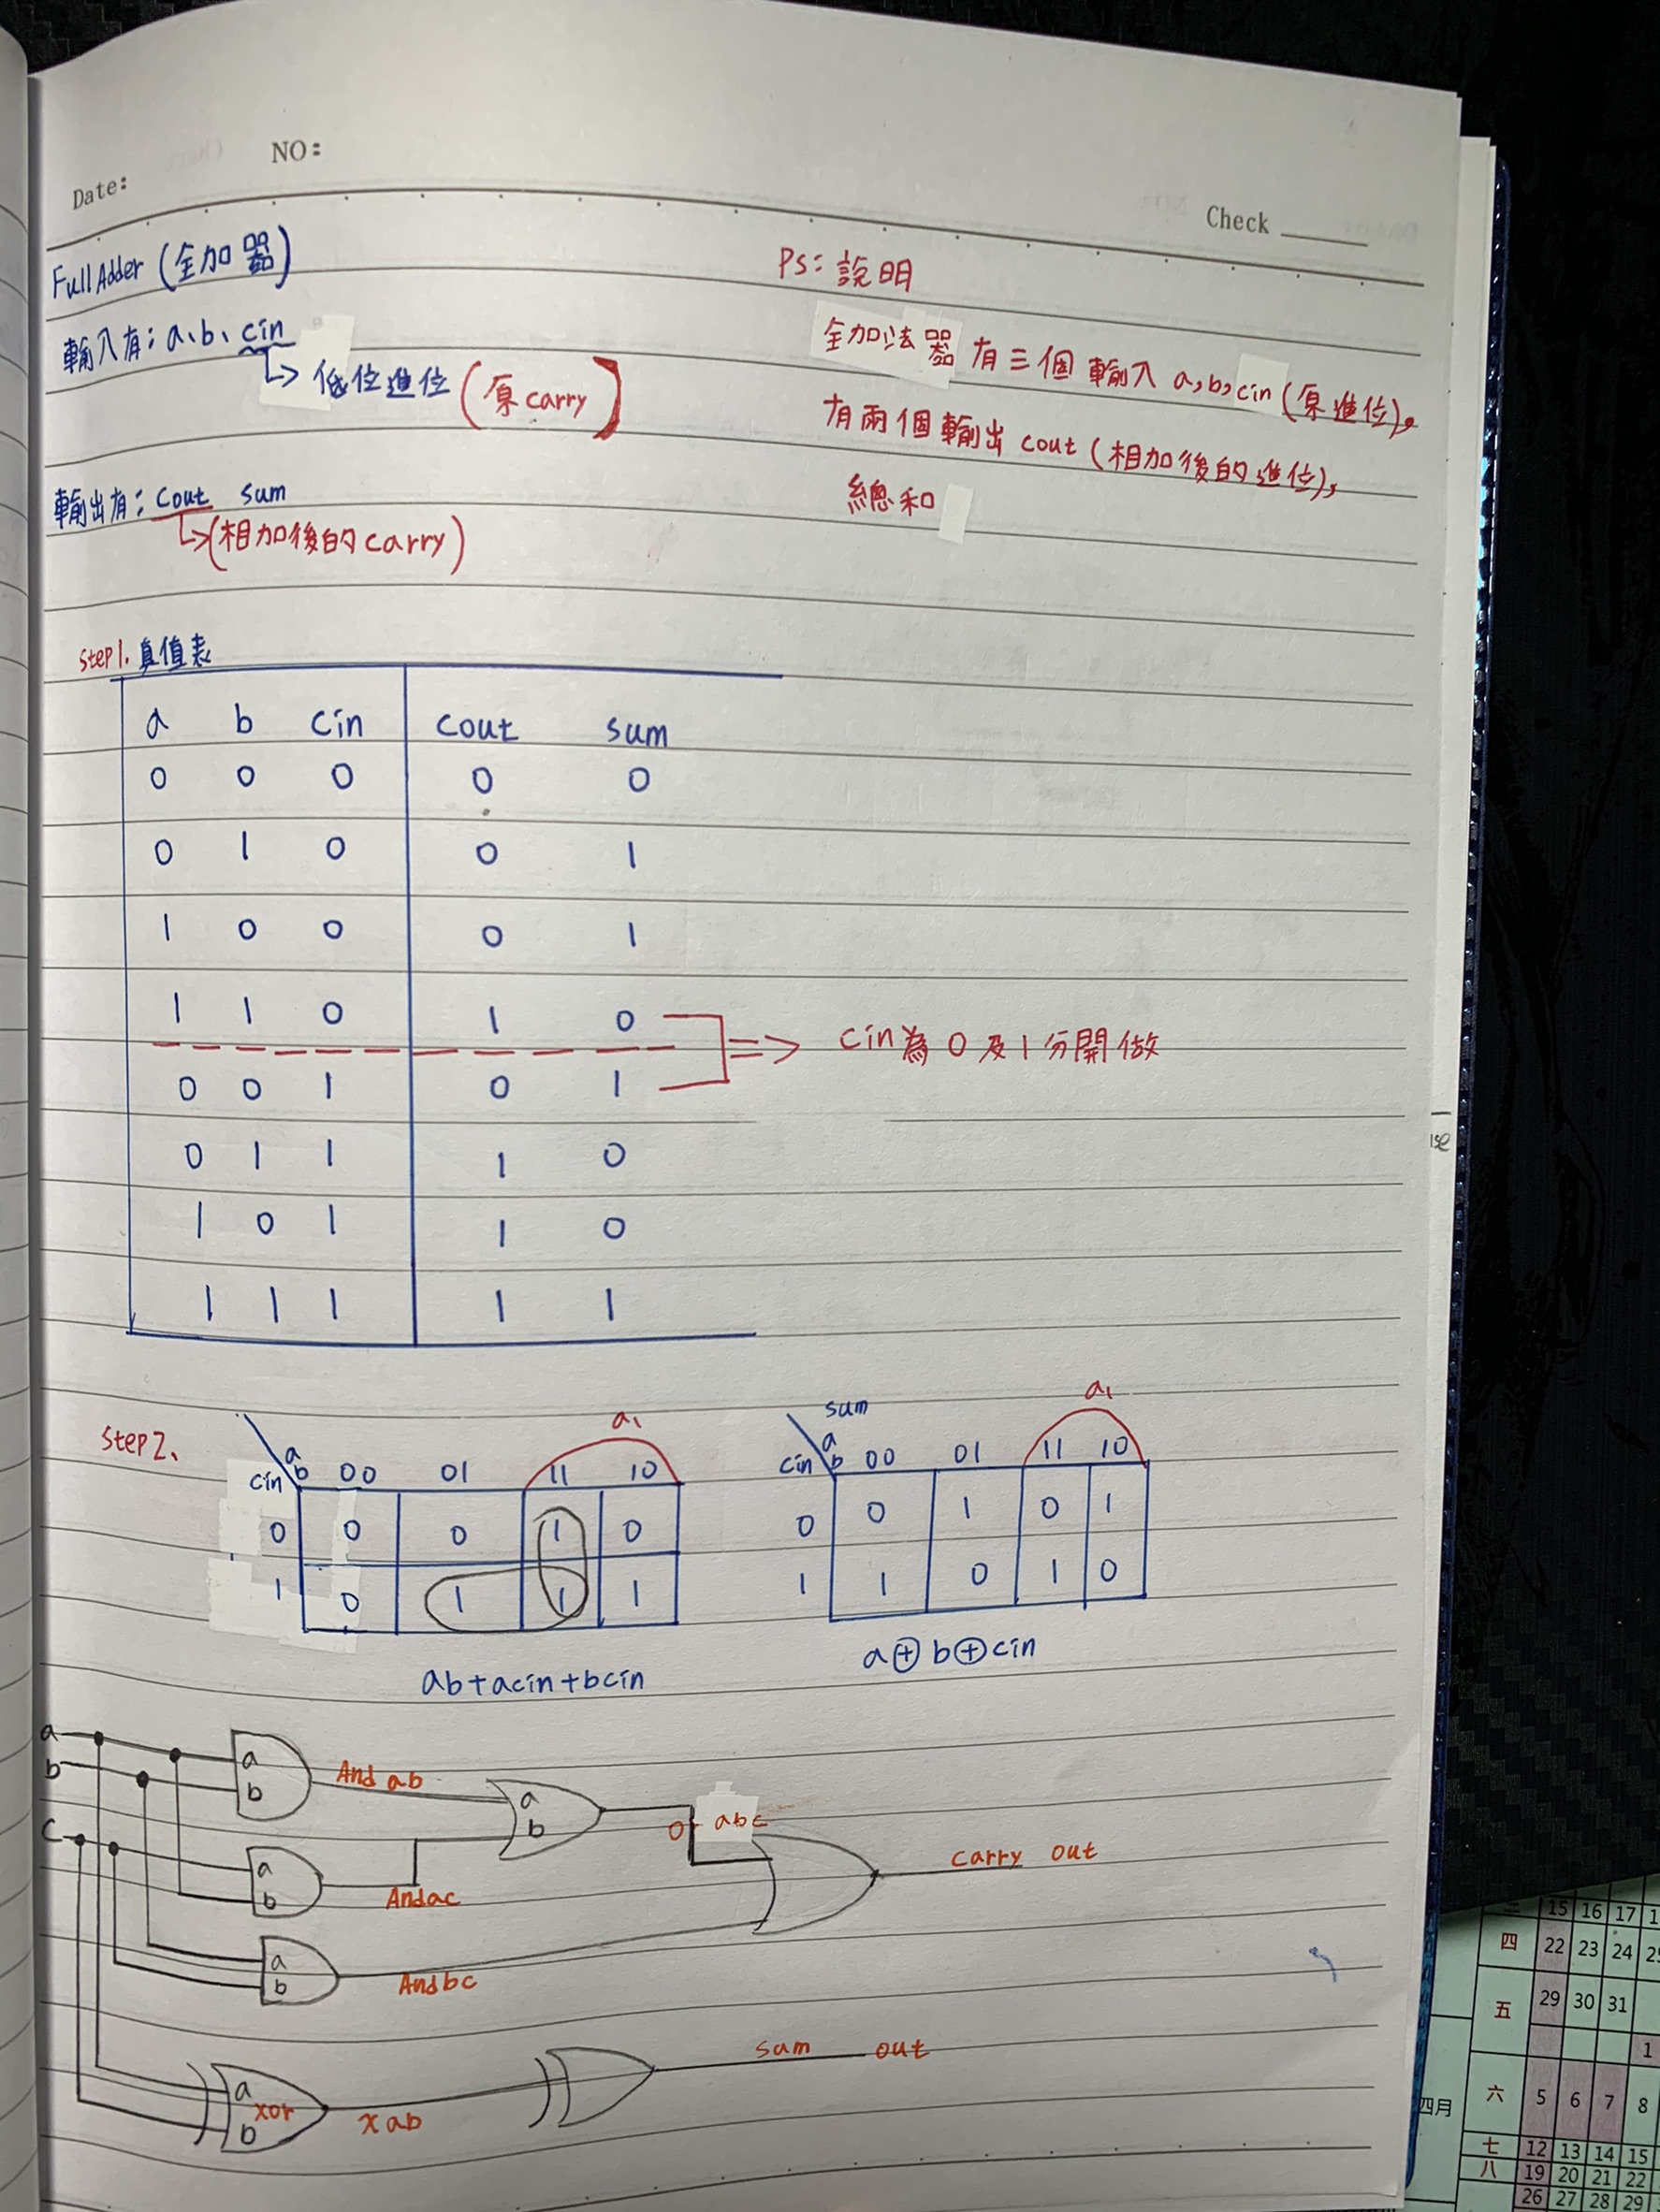 Date:
NO:
Check
Full Adder (全加器)
輸入有: a、b、cin
↳ 低位進位 (原 carry)
輸出有: cout sum
↳ (相加後的 carry)
Ps: 說明
全加法器 有三個 輸入 a,b,cin (原進位),
有兩個輸出 cout (相加後的進位),
總和
step1. 真值表
a b cin cout sum
0 0 0 0 0
0 1 0 0 1
1 0 0 0 1
1 1 0 1 0
0 0 1 0 1
0 1 1 1 0
1 0 1 1 0
1 1 1 1 1
=> cin為 0 及 1 分開做
step2.
a1
a
b
cin
00 01 11 10
0 0 0 1 0
1 0 1 1 1
ab+acin+bcin
sum
a1
a
b
cin
00 01 11 10
0 0 1 0 1
1 1 0 1 0
a⊕b⊕cin
a
b
C
a
b
And ab
a
b
And ac
a
b
And bc
a
b
or abc
carry out
a
xor
b
x ab
sum out
15 16 17 1
四 22 23 24 25
五 29 30 31
1
四月
六 5 6 7 8
七 12 13 14 15
八 19 20 21 22
26 27 28 29